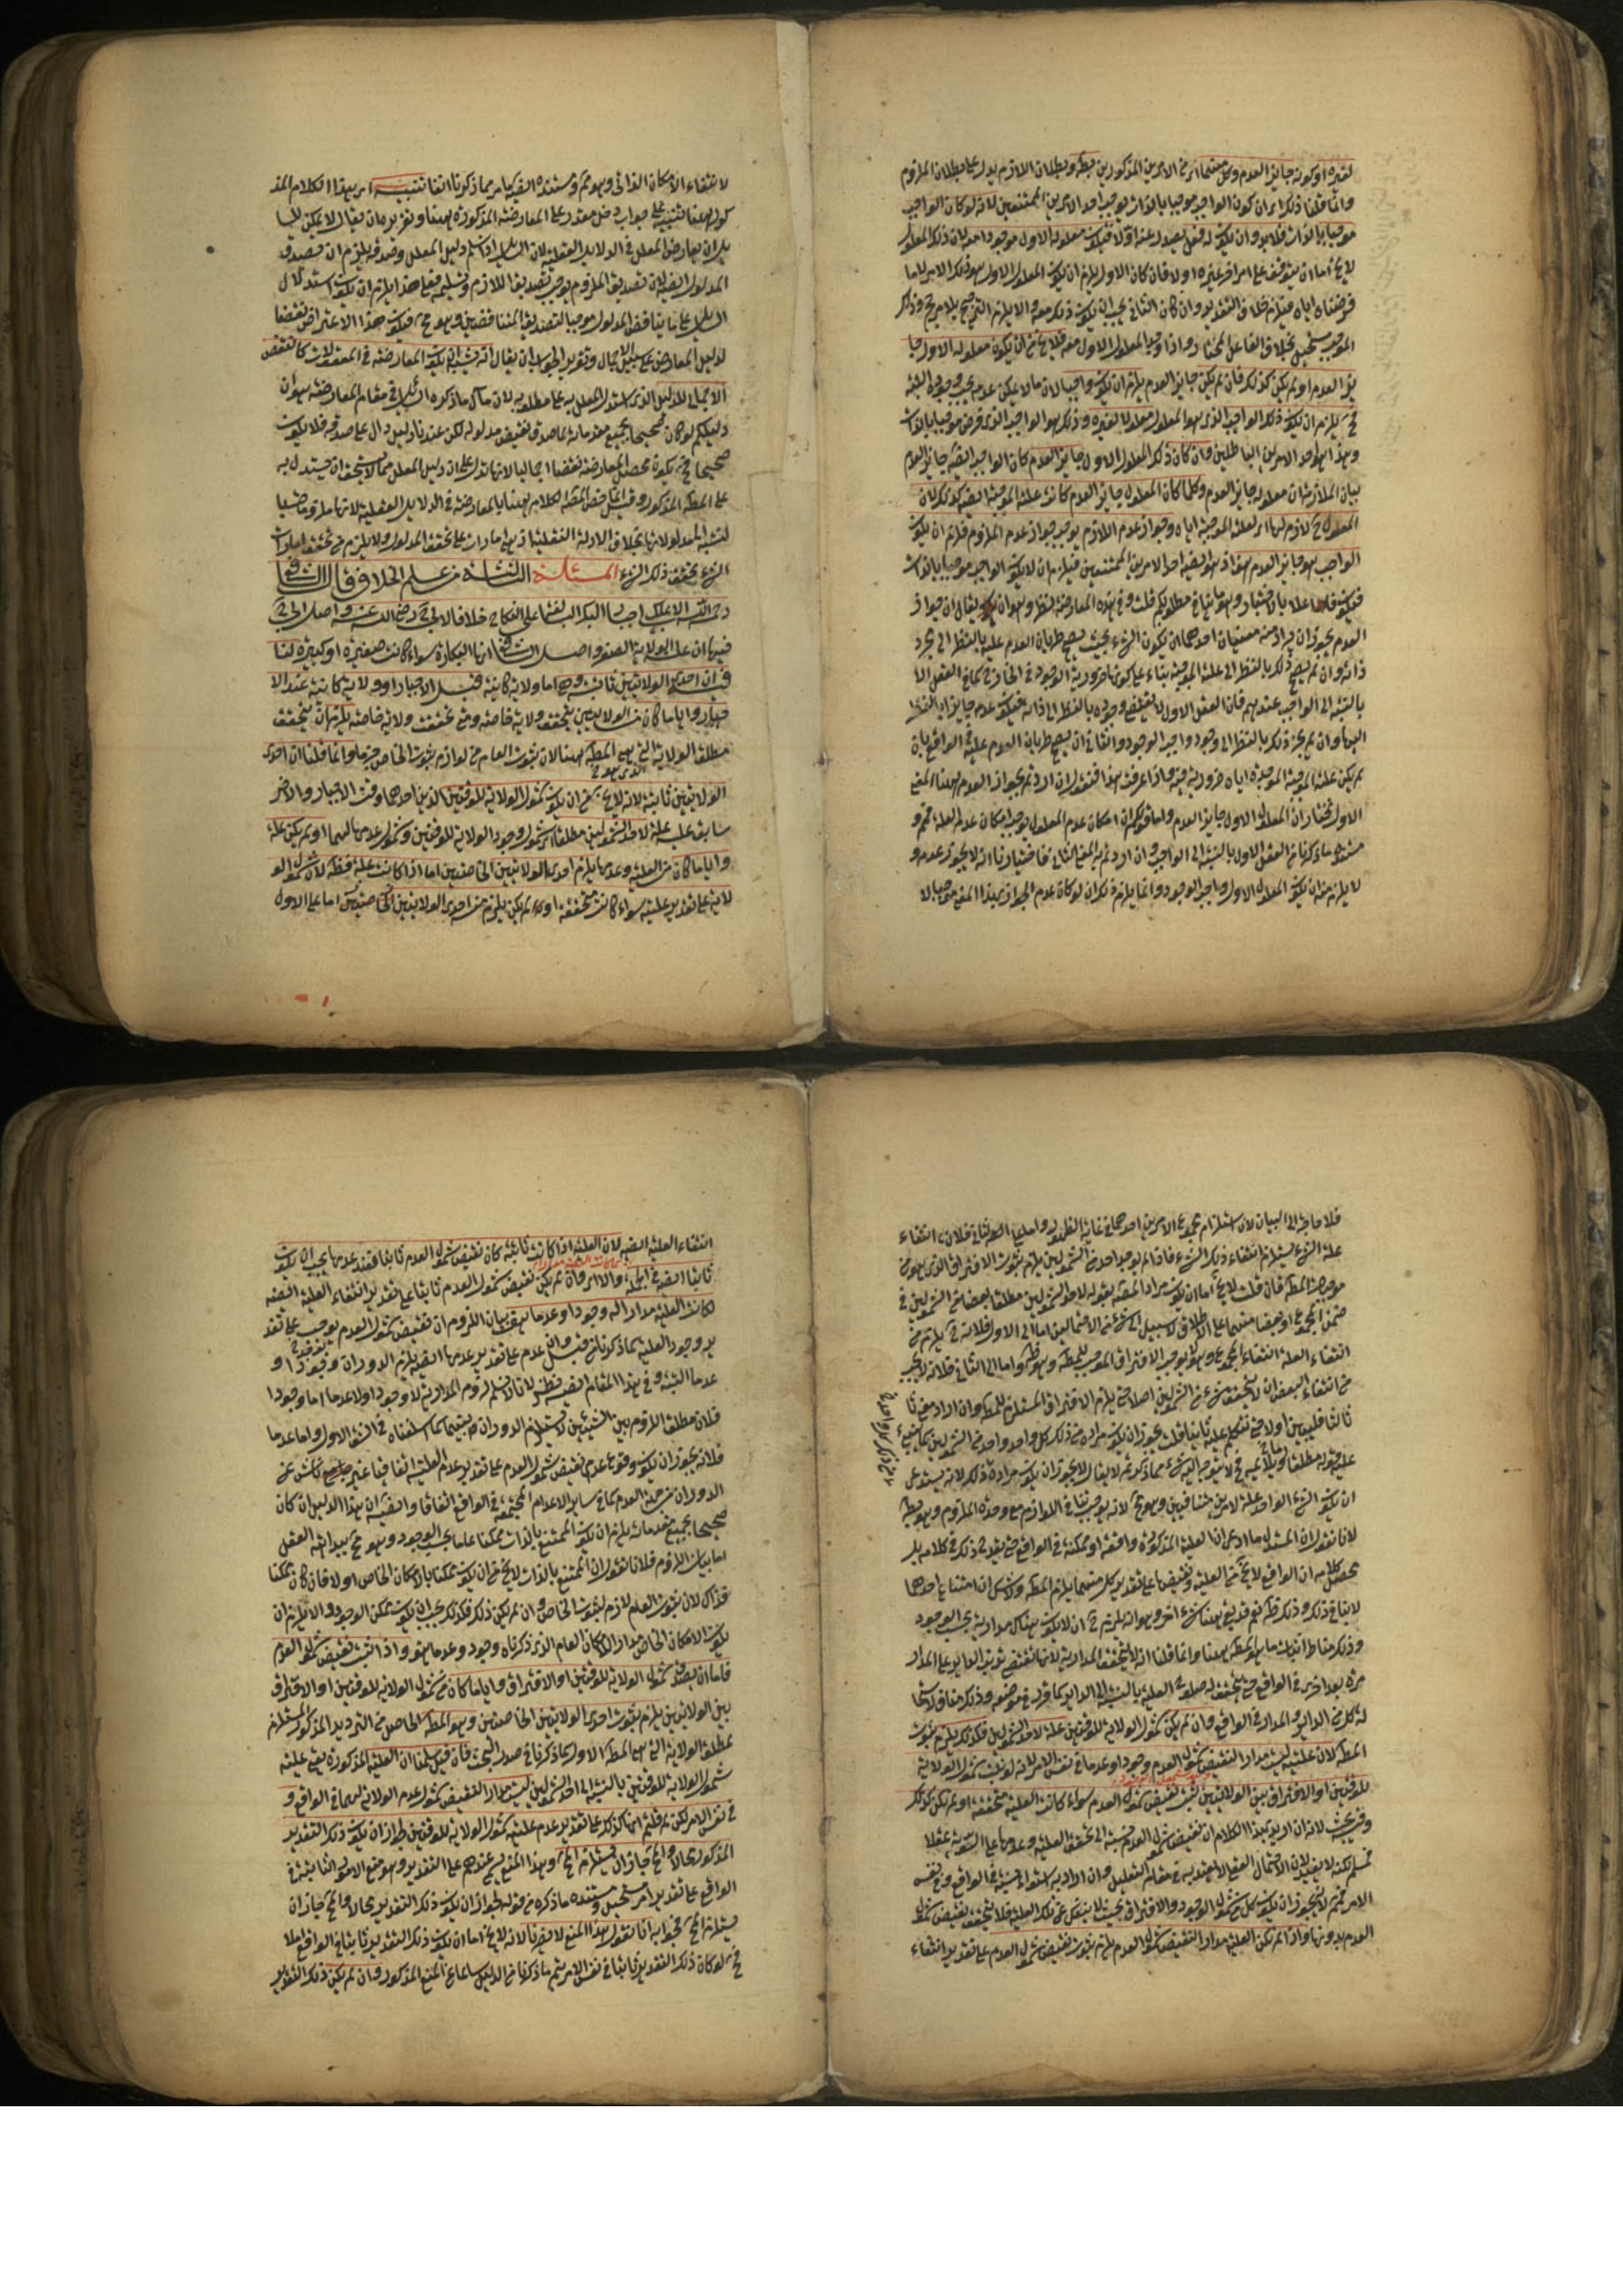 لغيره او كونه جايز العدم وكل منهما اى من الامرين المذكورين بط وبطلان اللازم يدل على بطلان الملزوم
وانما قلنا ذلك اى ان كون الواجب موجبا بالذات يوجب احد الامرين الممتنعين لانه لو كان الواجب
موجبا بالذات فلابد وان يكون له فعل يصدر عنه اولا فيكون معلوله الاول موجودا معه لان ذلك المعلول
لا يخ اما ان يتوقف على امر اخر غيره او لا فان كان الاول يلزم ان يكون المعلول الاول هو ذلك الامر لا ما
فرضناه اياه فيلزم خلاف التقدير وان كان الثانى يجب ان يكون ذلك معه والا يلزم الترجيح بلا مرجح وذلك
الموجب مستحيل بخلاف الفاعل المختار واذا وجد المعلول الاول معه فلا يخ من ان يكون معلوله الاول جا
يز العدم او لم يكن كذلك فان لم يكن جايز العدم يلزم ان يكون واجبا لان ما لا يمكن عدمه يجب وجوده البتة
فح يلزم ان يكون ذلك الواجب الذى هو المعلول معلولا لغيره وذلك هو الواجب الذى فرض موجبا بالذات
وهذا هو احد الامرين الباطلين وان كان ذلك المعلول الاول جايز العدم كان الواجب ايضا جايز العدم
بيان الملازمة ان معلوله جايز العدم وكلما كان المعلول جايز العدم كانت علته الموجبة ايضا كذلك لان
المعلول ح لازم لها اى لعلته الموجبة اياه وجواز عدم اللازم يوجب جواز عدم الملزوم فلزم ان يكون
الواجب هو جايز العدم هف اذ هو ايضا احد الامرين الممتنعين فيلزم ان لا يكون الواجب موجبا بالذات
فيكون فاعلا بالاختيار وهو ما ينافى مطلوبكم قلت وفى هذه المعارضة نظر وهو ان يقال ان جواز
العدم يجوز ان يراد منه معنيان احدهما ان يكون الشىء بحيث يصح طريان العدم عليه بالنظر الى مجرد
ذاته وان لم يصح ذلك بالنظر الى علته الموجبة بناء على كونها ضرورية الوجود فى الخارج كما فى العقل الاول
بالنسبة الى الواجب عندهم فان العقل الاول لا يقتضى وجوده بالنظر الى ذاته فيكون عدمه جايزا بالنظر
اليها وان لم يجز ذلك بالنظر الى وجود واجب الوجود والثانى ان يصح طريان العدم عليه فى الواقع بان
لم يكن علته الموجبة الموجدة اياه ضرورية فيه واذا عرفت هذا فنقول ان اردتم بجواز العدم ههنا المعنى
الاول نختار ان المعلول الاول جايز العدم واما قولكم ان امكان عدم المعلول يوجب امكان عدم العلة فمم و
مستنده ما ذكرنا من العقل الاول بالنسبة الى الواجب وان اردتم به المعنى الثانى فاختيارنا انه لا يجوز عدمه و
لا يلزم منه ان يكون المعلول الاول واجب الوجود وانما يلزم ذلك ان لو كان عدم الجواز بهذا المعنى موجبا لا
لانتفاء الامكان الذاتى وهو مم ومستنده ايضا يعلم مما ذكرنا انفا تنبيه اى بهذا الكلام المذ
كور ههنا تنبيه على جواب دخل مقدر على المعارضة المذكورة ههنا وتقريره ان يقال لا يمكن للسا
يل ان يعارض المعلل فى الدلايل العقلية لان السايل اذا سلم دليل المعلل وصدقه يلزم ان يصدق
المدلول ايضا لان تصديق الملزوم يوجب تصديق اللازم وتسليمه فعلى هذا يلزم ان يكون استدلال
السايل على ما يناقض المدلول موجبا لتصديق المتناقضين وهو مح فيكون هذا الاعتراض نقضا
لدليل المعارض على سبيل الاجمال وتقرير الجواب ان يقال انه يشبه ان يكون المعارضة فى المعقولات كالنقض
الاجمالى للدليل الذى استدل المعلل به على مطلوبه لان مآل ما ذكره السايل فى مقام المعارضة هو ان
دليلكم لو كان صحيحا بجميع مقدماته لما صدق نقيض مدلوله لكن عندنا دليل دال على صدقه فلا يكون
صحيحا فح يكون محصل المعارضة نقضا اجماليا لانها تدل على ان دليل المعلل مما لا يستحق ان يستدل به
على المط المذكور وقيل خص المص الكلام ههنا بالمعارضة فى الدلايل العقلية لانها ملزومات
لنسبة المدلولات بخلاف الادلة النقلية اذ هى امارات على تحقق المدلول ولا يلزم من تحقق امارات
الشىء تحقق ذلك الشىء المسئلة الثالثة من علم الخلاف قال الشافعى
رحمه الله الاب يملك اجبار البكر البالغة على النكاح خلافا لابى ح رضى الله عنه واصل ابى ح
فيها ان علة الولاية الصغر واصل الشافعى انها البكارة سواء كانت صغيرة او كبيرة لنا
ان احدى الولايتين ثابتة وهى اما ولاية كاينة قبل الاجبار او ولاية كاينة عند الا
جبار وايا ما كان من الولايتين يتحقق ولاية خاصة ومتى تحققت ولاية خاصة يلزم ان يتحقق
مطلق الولاية التى هى المط ههنا لان ثبوت العام من لوازم ثبوت الخاص جزما وانما قلنا ان احدى
الولايتين ثابتة لانه لا يخ من ان يكون شمول الولاية للوقتين الذين احدهما وقت الاجبار والاخر
سابق عليه علة لاحد الشمولين مطلقا اى شمول وجود الولاية للوقتين وشمول عدمها لهما او لم يكن علة
وايا ما كان من العلية وعدمها يلزم احدى الولايتين الخاصتين اما اذا كانت علة فظ لان شمول الو
لاية على تقدير علية سواء كانت متحققة او لم يكن يلزم من احدى الولايتين الخاصتين اما على الاول
فلا حاجة الى البيان لان استلزام مجموع الامرين احدهما فى غاية الظهور واما على الثانى فلان انتفاء
علة الشىء يستلزم انتفاء ذلك الشىء فاذا لم يوجد احد من الشمولين يلزم ثبوت الافتراق الذى هو من
موجبات المط فان قلت لا يخ اما ان يكون مراد المص بقوله لاحد الشمولين مطلقا بعضا من الشمولين فى
ضمن المجموع او بعضا منهما على الاطلاق لا سبيل الى شىء من الاحتمالين اما الى الاول فلانه ح يلزم من
انتفاء العلة انتفاء المجموع وهو لا يوجب الافتراق الموجب للمط وهو ظ واما الى الثانى فلانه لا يجب
من انتفاء البعض ان لا يتحقق شىء من الشمولين اصلا حتى يلزم الافتراق المستلزم للمط وان اراد معنى ثا
لثا فليبين اولا حتى نتكلم عليه ثانيا قلت يجوز ان يكون مراده من ذلك كل واحد واحد من الشمولين كما ينبىء
عليه قوله مطلقا فح لا يتوجه اليه شىء مما ذكرتم لا يقال لا يجوز ان يكون مراده ذلك لانه يستدعى
ان يكون الشىء الواحد علة لامرين متنافيين وهو مح لانه يوجب تنافى اللوازم مع وحدة الملزوم وهو بط
لانا نقول ان المستدل ما ادعى ان العلية المذكورة واقعة او ممكنة فى الواقع حتى يقدح ذلك فى كلامه بل
محصل كلامه ان الواقع لا يخ من العلية ونقيضها وعلى تقدير كل منهما يلزم المط ولا شك ان امتناع احدهما
لا ينافى ذلك وذلك ظ نعم قد بقى ههنا شىء اخر وهو انه يلزم ح ان لا يكون هناك مدارية بحسب الوجود
وذلك مناط اثبات ما هو المط ههنا وانما قلنا انه لا يتحقق المدارية لانها تقتضى ترتب الداير على المدار
مرة بعد اخرى فى الواقع حتى يتحقق له صلوح العلية بالنسبة الى الداير كما قرر فى موضعه وذلك مناف لاستحا
لة كل من الداير والمدار فى الواقع وان لم يكن شمول الولاية للوقتين علة لاحد الشمولين فكذلك يلزم ثبوت
المط لان علية ليست مدارا لنقيض شمول العدم وجودا وعدما فى نفس الامر لانه لو ثبت شمول الولاية
للوقتين او الافتراق بين الولايتين يثبت نقيض شمول العدم سواء كانت العلية متحققة او لم يكن كذلك
وفيه بحث لانه ان اريد بهذا الكلام ان نقيض شمول العدم نسبته الى تحقق العلية وعدمها على السوية عقلا
فمسلم لكنه لا يفيد لان الاحتمال العقلى لا يعتد به فى مقام التعليل وان اراد به استواء نسبته فى الواقع وفى نفس
الامر فمم لانه يجوز ان يكون كل من شمول الوجود والافتراق بحيث لا ينفك عن تلك العلية فلا يتحقق نقيض شمول
العدم بدونها واذا لم تكن العلية مدارا لنقيض شمول العدم يلزم ثبوت نقيض شمول العدم على تقدير انتفاء
انتفاء العلية ايضا لان العلية اذا كانت ثابتة كان نقيض شمول العدم ثابتا فعند عدمها يجب ان يكون
ثابتا ايضا فى الجملة والا اى وان لم يكن نقيض شمول العدم ثابتا على تقدير انتفاء العلية ايضا
لكانت العلية مدارا له وجودا وعدما هف بيان اللزوم ان نقيض شمول العدم يوجب على تقد
ير وجود العلية لما ذكرنا من قبل واذا عدم على تقدير عدمها ايضا يلزم الدوران وجودا و
عدما البتة وفى هذا المقام ايضا نظر لانا لا نسلم لزوم المدارية لا وجودا ولا عدما اما وجودا
فلان مطلق اللزوم بين الشيئين لا يستلزم الدوران بينهما كما اسلفناه فى الشق الاول واما عدما
فلانه يجوز ان يكون وقوع عدم نقيض شمول العدم على تقدير عدم العلية اتفاقيا غير ناش عن
الدوران من جهة العدم كما فى ساير الاعدام المجتمعة فى الواقع اتفاقا وايضا ان هذا الدليل ان كان
صحيحا بجميع مقدماته يلزم ان يكون الممتنع بالذات ممكنا عاما بحسب الوجود وهو مح ببداهة العقل
اما بيان اللزوم فلانا نقول ان الممتنع بالذات لا يخ من ان يكون ممكنا بالامكان الخاص او لا فان كان ممكنا
فذاك لان ثبوت العام لازم لثبوت الخاص وان لم يكن ذلك فكذلك يجب ان يكون ممكن الوجود والا يلزم ان
يكون الامكان الخاص مدارا للامكان العام الذى ذكرناه وجودا وعدما هف واذا ثبت نقيض شمول العدم
فاما ان يصدق شمول الولاية للوقتين او الافتراق وايا ما كان من شمول الولاية للوقتين او الافتراق
بين الولايتين يلزم ثبوت احدى الولايتين الخاصتين وهو المط الحاصل من الترديد المذكور المستلزم
لمطلق الولاية التى هى المط الاول كما ذكرنا فى صدر البحث فان قيل سلمنا ان العلية المذكورة يعنى علية
شمول الولاية للوقتين بالنسبة الى احد الشمولين ليست مدارا لنقيض شمول عدم الولاية لهما فى الواقع و
فى نفس الامر لكن لم قلتم انها كذلك على تقدير عدم علية شمول الولاية للوقتين لجواز ان يكون ذلك التقدير
المذكور محالا والمح جاز ان يستلزم المح وهذا المنع يسمى عندهم على التقدير وهو منع الامور الثابتة فى
الواقع على تقدير امر مستحيل ومستنده ما ذكره من قوله لجواز ان يكون ذلك التقدير محالا والمح جاز ان
يستلزم المح فجوابه انا نقول هذا المنع لا يضرنا لانه لا يخ اما ان يكون ذلك التقدير ثابتا فى الواقع او لا
فح لو كان ذلك التقدير ثابتا فى نفس الامر يتم ما ذكرنا من الدليل سالما عن المنع المذكور وان لم يكن ذلك التقدير